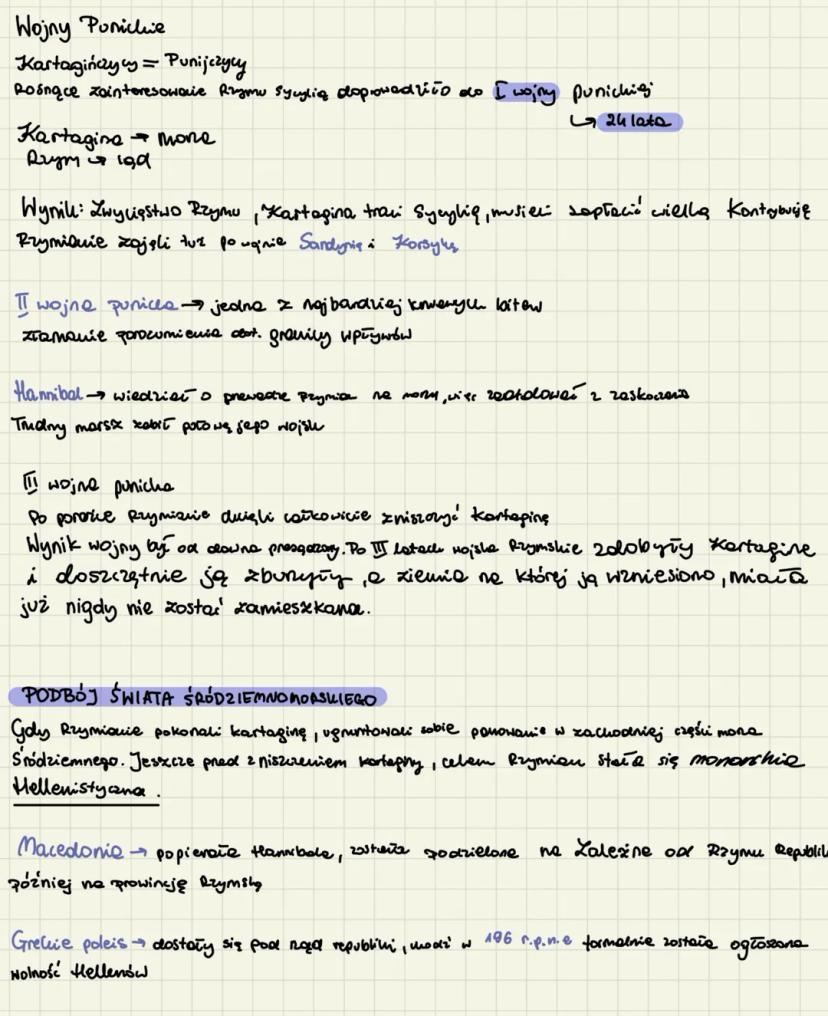 Wojny Punickie
Kartagińczycy = Punijczycy
Rosnące zainteresowanie Rzymu Sycylią doprowadziło do I wojny punickiej
↳ 24 lata
Kartagina → morze
Rzym → ląd
Wynik: Zwycięstwo Rzymu, Kartagina traci Sycylię, musieli zapłacić wielką kontrybucję
Rzymianie zajęli tuż po wojnie Sardynię i Korsykę
II wojna punicka → jedna z najbardziej krwawych bitew
złamanie porozumienia dot. granicy wpływów
Hannibal → wiedział o przewadze Rzymian na morzu, więc zaatakował z zaskoczenia
Trudny marsz zabił połowę jego wojsk
III wojna punicka
Po porażce Rzymianie chcieli całkowicie zniszczyć Kartaginę
Wynik wojny był od dawna przesądzony. Po III latach wojska Rzymskie zdobyły Kartaginę
i doszczętnie ją zburzyły, a ziemia na której ją wzniesiono, miała
już nigdy nie zostać zamieszkana.
PODBÓJ ŚWIATA ŚRÓDZIEMNOMORSKIEGO
Gdy Rzymianie pokonali kartaginę, ugruntowali sobie panowanie w zachodniej części morza
Śródziemnego. Jeszcze przed zniszczeniem kartaginy, celem Rzymian stała się monarchia
Hellenistyczna.
Macedonia → popierała Hannibala, została podzielona na Zależne od Rzymu Republik
później na prowincję Rzymską
Greckie poleis → dostały się pod rząd republiki, choć w 196 r.p.n.e formalnie została ogłoszona
wolność Hellenów